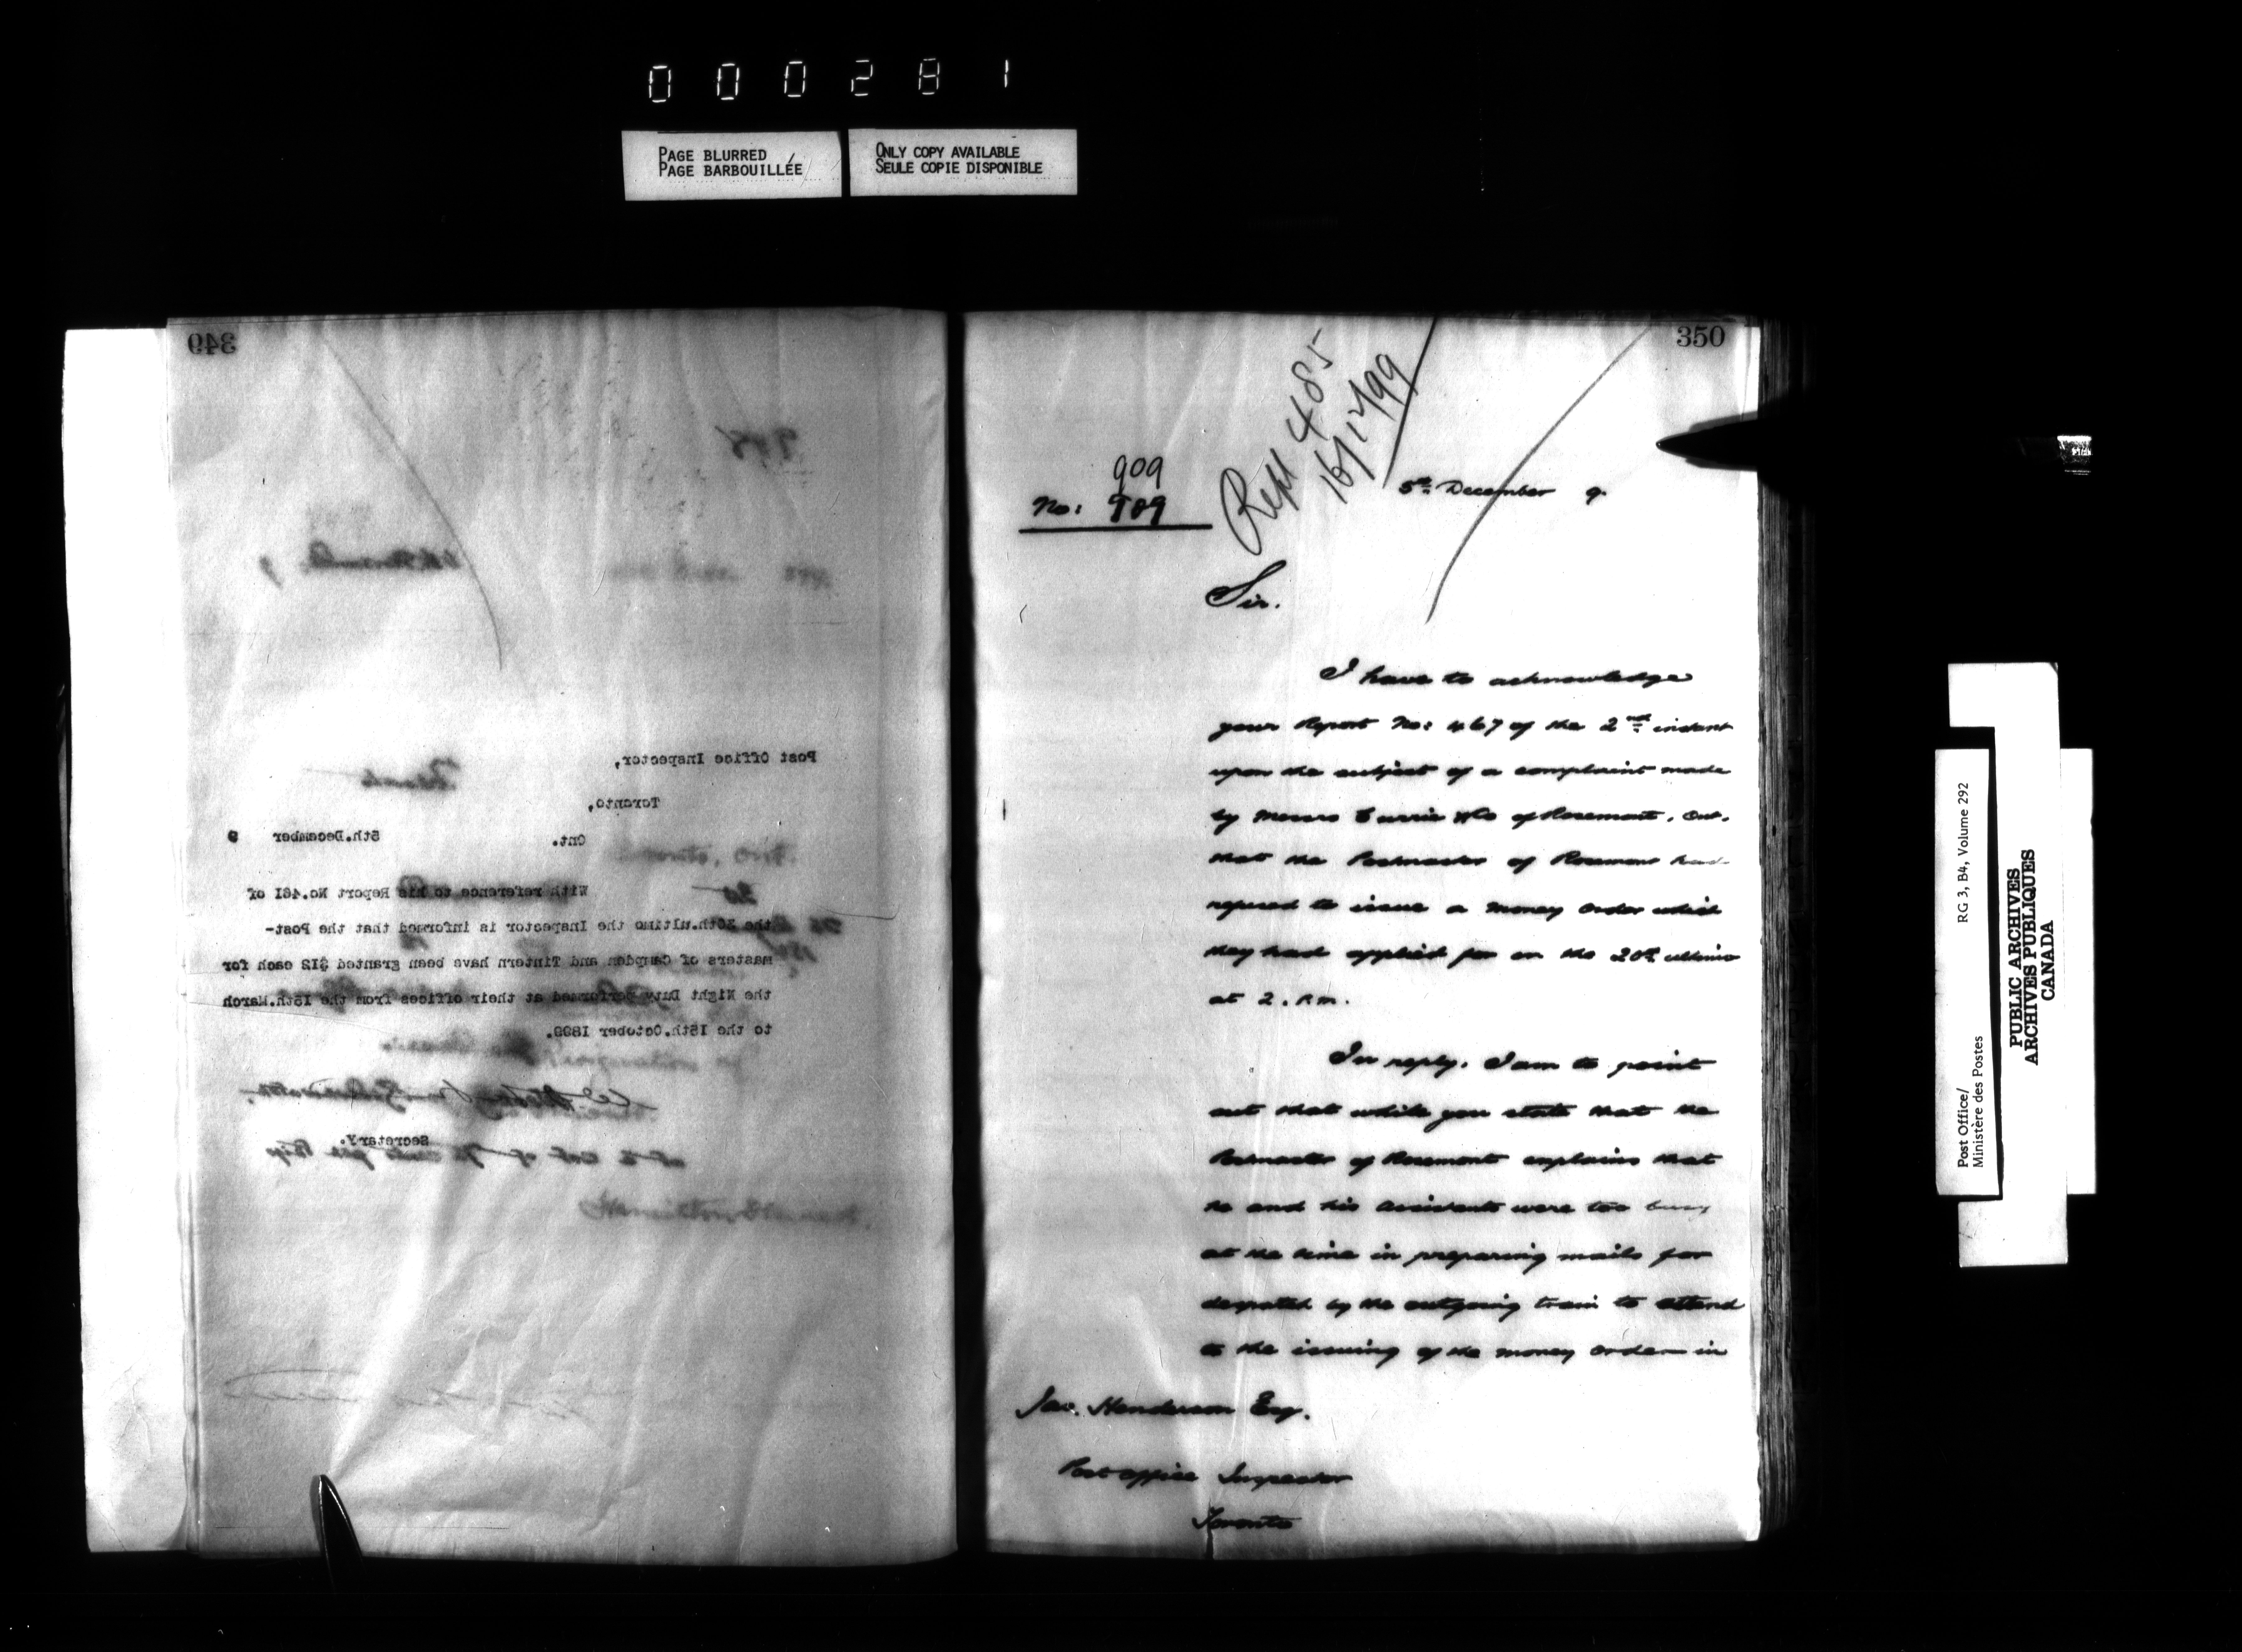 000281
PAGE BLURRED
PAGE BARBOUILLÉE
ONLY COPY AVAILABLE
SEULE COPIE DISPONIBLE
349
Post Office Inspector,
Toronto,
Ont. 5th.December 9
With reference to his Report No.461 of
the 30th.ultimo the Inspector is informed that the Post-
masters of Campden and Tintern have been granted $12 each for
the Night Duty performed at their offices from the 15th.March
to the 15th.October 1899.
Secretary.
350
Rept 485
16/12/99
909
No: 909
5th December 9.
Sir.
I have to acknowledge
your Report No: 467 of the 2nd instant
upon the subject of a complaint made
by Messrs Currie & Co of Rosemont. Ont.
that the Postmaster of Rosemont had
refused to issue a money order which
they had applied for on the 20th ultimo
at 2. P.m.
In reply. I am to point
out that while you state that the
Postmaster of Rosemont explains that
he and his assistants were too busy
at the time in preparing mails for
despatch by the outgoing train to attend
to the issuing of the money order in
Jas. Henderson Esq.
Post Office Inspector
Toronto
Post Office/ RG 3, B4, Volume 292
Ministère des Postes
PUBLIC ARCHIVES
ARCHIVES PUBLIQUES
CANADA